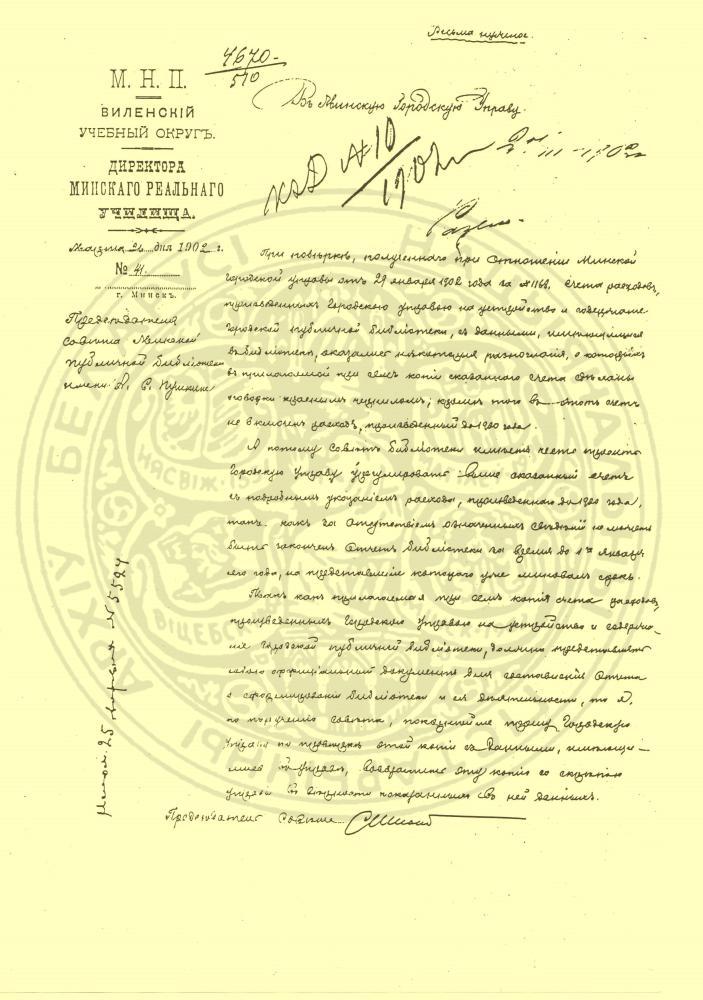 Весьма нужное.
4670
570
М. Н. П.
ВИЛЕНСКІЙ
УЧЕБНЫЙ ОКРУГЪ.
ДИРЕКТОРА
МИНСКАГО РЕАЛЬНАГО
УЧИЛИЩА.
Марта 2 дня 1902 г.
№ 41.
г. Минскъ.
Председателя
Совѣта Минской
публичной библіотеки
имени А. С. Пушкина
Въ Минскую Городскую Управу.
№ 10
1902
При повѣркѣ, полученнаго при отношеніи Минской
Городской управы отъ 29 января 1902 года за № 1168, счета расходовъ,
произведенныхъ Городскою управою на устройство и содержаніе
Городской публичной библіотеки, съ данными, имѣющимися
въ библіотекѣ, оказались нѣкоторыя разногласія, о которыхъ
въ прилагаемой при семъ копіи сказаннаго счета сдѣланы
оговорки красными чернилами; кромѣ того въ этотъ счетъ
не включенъ расходъ, произведенный до 1900 года.
А потому Совѣтъ библіотеки имѣетъ честь просить
Городскую управу урегулировать выше сказанный счетъ
съ подробнымъ указаніемъ расхода, произведеннаго до 1900 года,
такъ какъ за отсутствіемъ означенныхъ свѣдѣній не можетъ
быть законченъ отчетъ библіотеки за время до 1го января
сего года, на представленіе котораго уже миновалъ срокъ.
Такъ какъ прилагаемая при семъ копія счета расходовъ,
произведенныхъ Городскою управою на устройство и содержа-
ніе Городской публичной библіотеки, должна представлять
собою оффиціальный документъ для составленія отчета
о сформированіи библіотеки и ея дѣятельности, то я,
по порученію совѣта, покорнѣйше прошу Городскую
управу по провѣркѣ этой копіи съ данными, имѣющи-
мися въ управѣ, возвратить эту копію со скрѣпою
управы въ вѣрности показанныхъ въ ней данныхъ.
Председатель Совѣта
25 № 5524